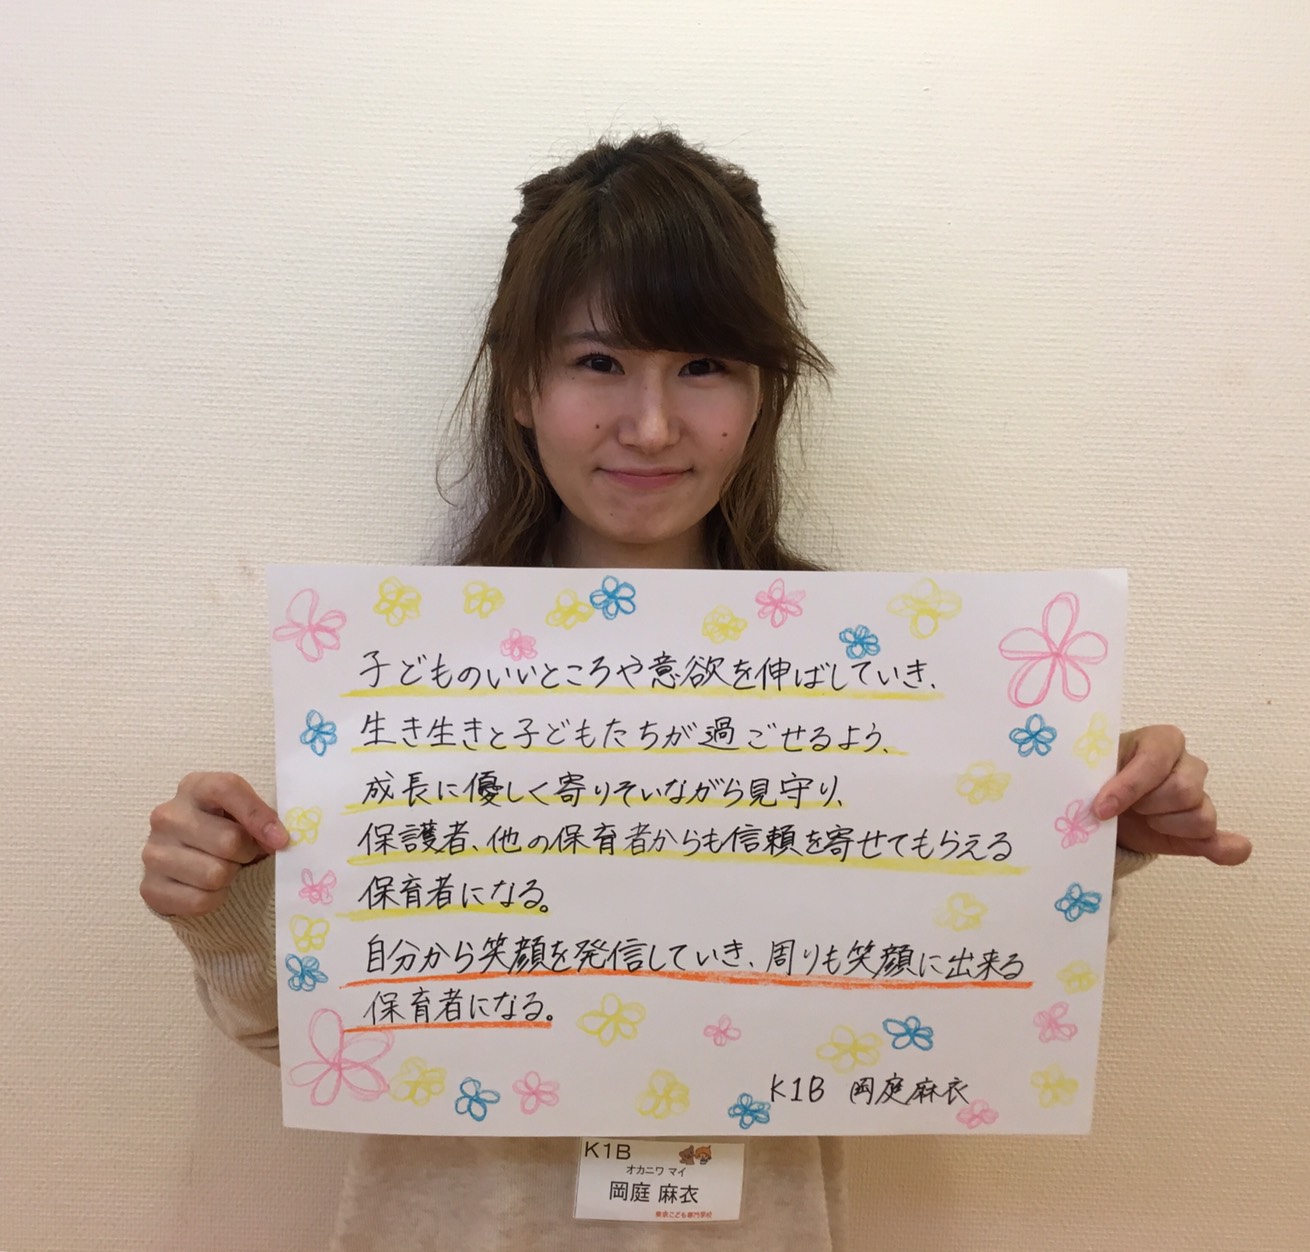 子どものいいところや意欲を伸ばしていき、
生き生きと子どもたちが過ごせるよう、
成長に優しく寄りそいながら見守り、
保護者、他の保育者からも信頼を寄せてもらえる
保育者になる。
自分から笑顔を発信していき、周りも笑顔に出来る
保育者になる。
K1B 岡庭麻衣
K1B
オカニワ マイ
岡庭 麻衣
東京こども専門学校